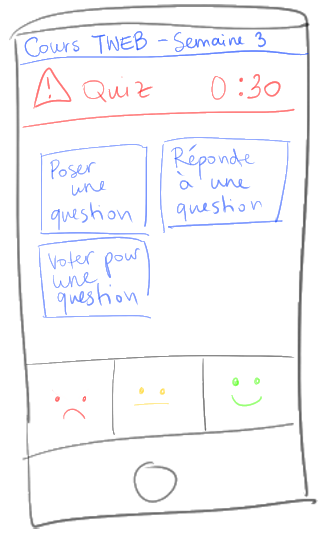 Cours TWEB - Semaine 3
! Quiz 0:30
Poser
une
question
Réponde
à une
question
Voter pour
une
question